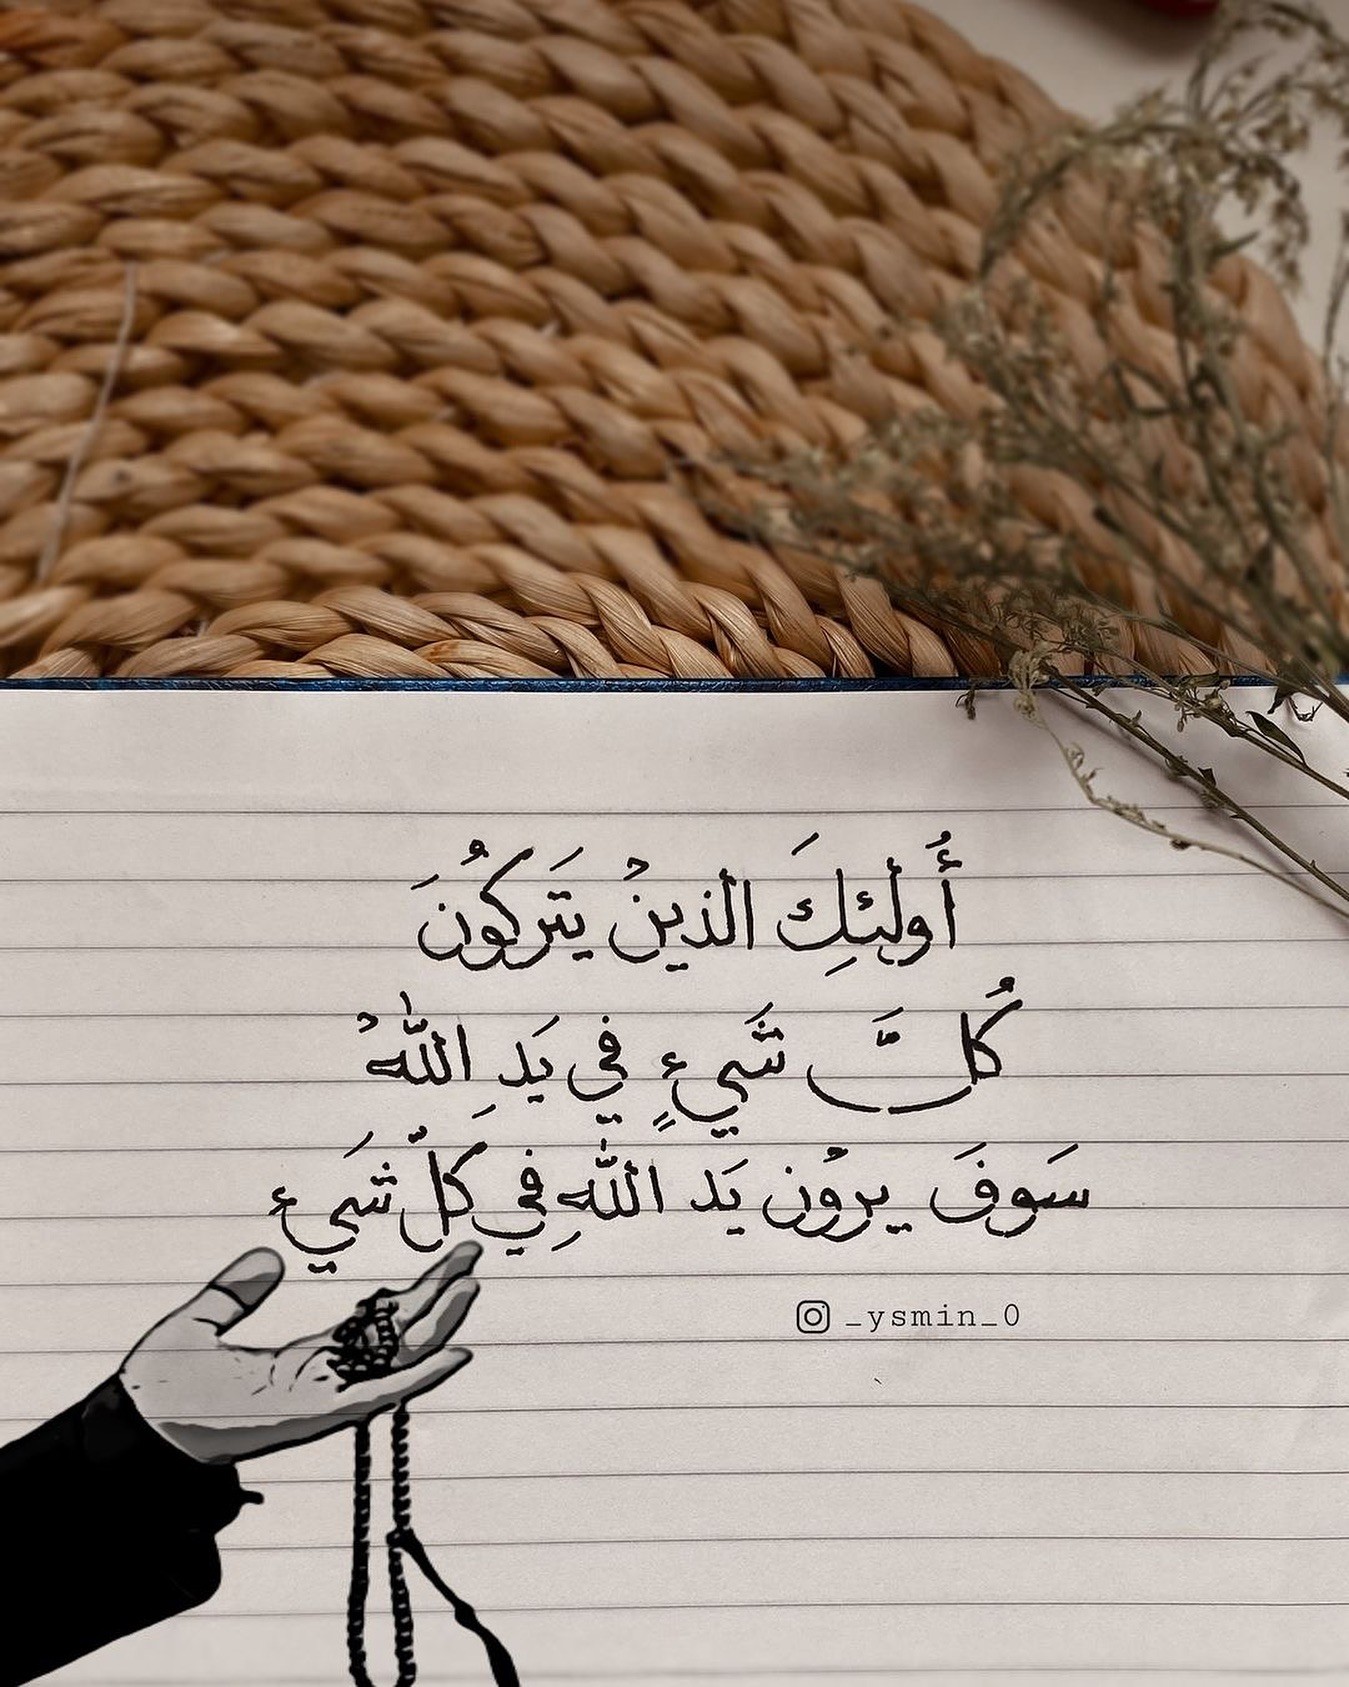 أُولَئِكَ الذينْ يَتَركُونَ
كُلَّ شَيءٍ في يَدِ اللّهْ
سَوفَ يرؤن يَد اللّهِ في كَلّ شَيء
_ysmin_0